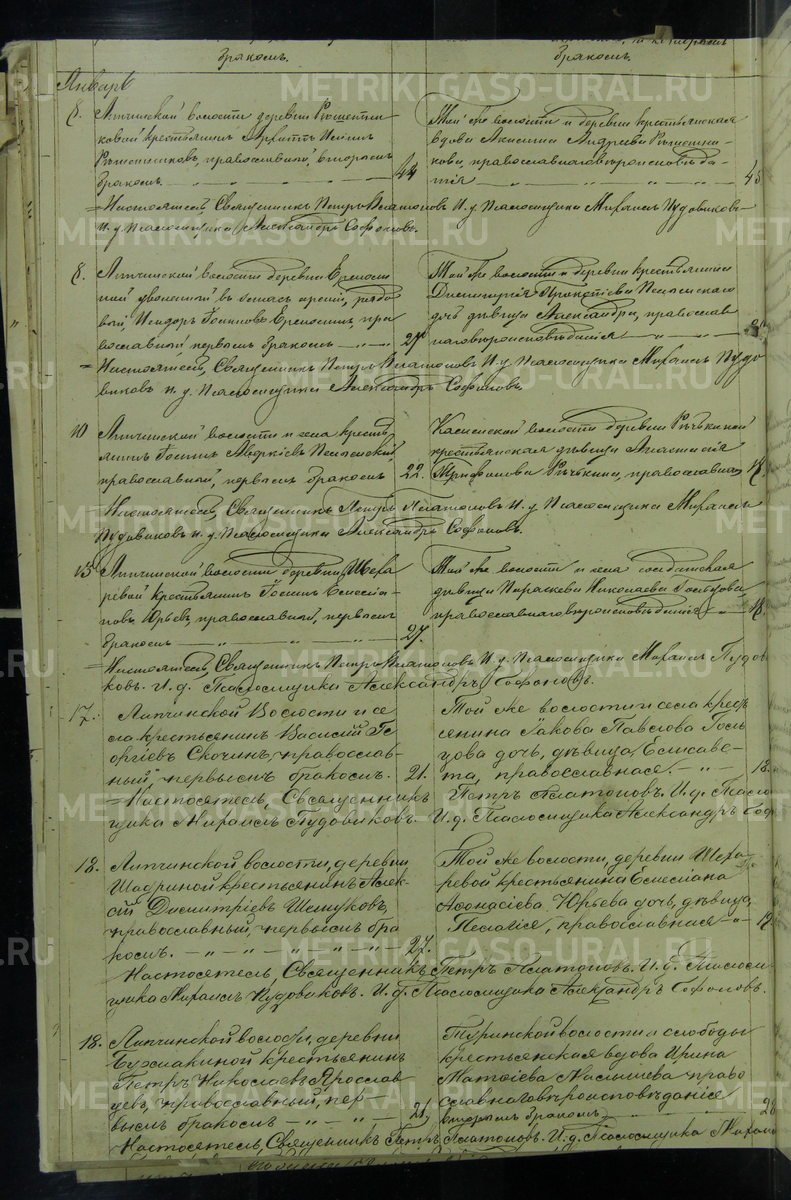 бракомъ.
бракомъ.
Январь
8. Липчинской волости деревни Решетни-
ковой крестьянинъ
Решетниковъ, православный, вторымъ
бракомъ. 44
Той же волости и деревни крестьянская
вдова Андреева Решетни-
кова, православнаго вероисповеда-
нія 45
Настоятель, Священникъ Петръ Платоновъ И. д. Псаломщика Михаилъ Пудовиковъ
И. д. Псаломщика Александръ Софоновъ.
8. Липчинской волости деревни
уволенный въ запасъ арміи, рядо-
вой, пра-
вославный первымъ бракомъ 27
Той же волости и деревни крестьянина
Димитрія
дочь девица Александра, православ-
наго вероисповеданія
Настоятель, Священникъ Петръ Платоновъ И. д. Псаломщика Михаилъ Пудо
виковъ и. д. Псаломщика Александръ Софоновъ.
10 Липчинской волости и села кресть-
янинъ
православный, первымъ бракомъ 22.
волости деревни Речкиной
крестьянская девица Анастасія
Трифонова Речкина, православная 18.
Настоятель, Священникъ Петръ Платоновъ И. д. Псаломщика Михаилъ
Пудовиковъ и. д. Псаломщика Александръ Софоновъ.
13 Липчинской волости деревни Шеха-
ревой крестьянинъ
Юрьевъ, православный, первымъ
бракомъ 27.
Той же волости и села солдатская
девица Параскева Николаева Гольцова,
православнаго вероисповеданія 18.
Настоятель, Священникъ Петръ Платоновъ И. д. Псаломщика Михаилъ Пудов
ковъ. И. д. Псаломщика Александръ Софоновъ.
17. Липчинской Волости и се-
ла крестьянинъ Василій Ге-
оргіевъ Скочинъ, православ-
ный, первымъ бракомъ. 21.
Той же волости и села крест
янина Іакова Павлова Голь-
цова дочь, девица Елисаве-
та, православная. 18.
Настоятель, Священникъ Петръ Платоновъ. И. д. Псало
щика Михаилъ Пудовиковъ. И. д. Псаломщика Александръ Соф
18. Липчинской волости, деревни
Шадриной крестьянинъ Алек-
сій Димитріевъ Шешуковъ,
православный, первымъ бра
комъ. 27.
Той же волости, деревни Шеха-
ревой крестьянина Емеліана
Афонасіева Юрьева дочь, девица,
Пелагія, православная 19
Настоятель, Священникъ Петръ Платоновъ. И. д. Псалом
щика Михаилъ Пудовиковъ. И. д. Псаломщика Александръ Софоновъ.
18. Липчинской волости, деревни
Бурмакиной крестьянинъ
Петръ Николаевъ Ярослав
цевъ, православный, пер-
вымъ бракомъ 21,
Туринской волости и слободы
крестьянская вдова Ирина
Матфіева право
славнаго вероисповеданія
вторымъ бракомъ. 28
Настоятель, Священникъ Петръ Платоновъ. И. д. Псаломщика Михаил
METRIKI.GASO-URAL.RU